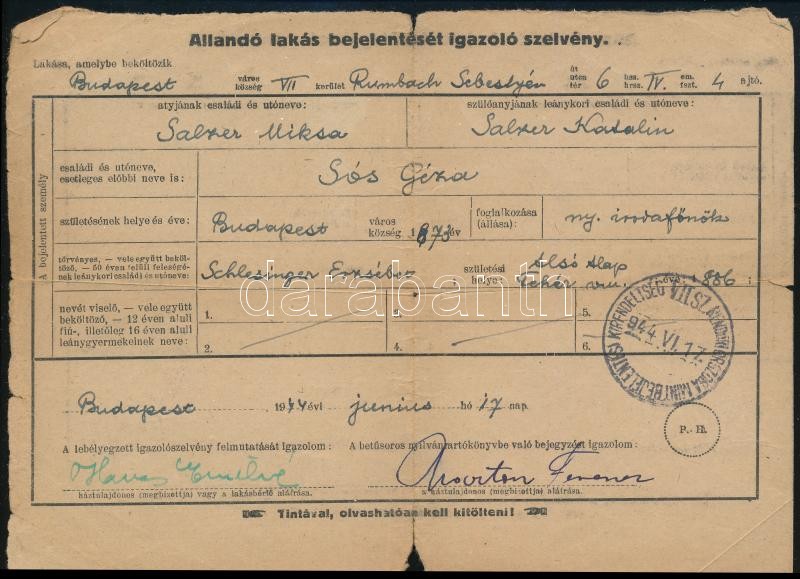 Állandó lakás bejelentését igazoló szelvény.
Lakása, amelybe beköltözik
Budapest város község VII kerület Rumbach Sebestyén út utca tér 6 hsz. hrsz. IV. em. fszt. 4 ajtó.
A bejelentett személy
atyjának családi és utóneve: szülőanyjának leánykori családi és utóneve:
Salzer Miksa Salzer Katalin
családi és utóneve, esetleges előbbi neve is: Sós Géza
születésének helye és éve: Budapest város község 1873 év foglalkozása (állása): ny. irodafőnök
törvényes, — vele együtt beköltöző, — 50 éven felüli feleségének leánykori családi és utóneve: Schlesinger Erzsébet születési helye: Alsó Alap Fehér vm. éve: 1886
nevét viselő, — vele együtt beköltöző, — 12 éven aluli fiú-, illetőleg 16 éven aluli leánygyermekeinek neve:
1. 3. 5.
2. 4. 6.
KIRENDELTSÉG VII. SZ.
944 VI. 17.
Budapest 1944 évi junius hó 17 nap.
P. H.
A lebélyegzett igazolószelvény felmutatását igazolom: A betűsoros nyilvántartókönyvbe való bejegyzést igazolom:
Havas Marton Ferenc
háztulajdonos (megbízottja) vagy a lakásbérlő aláírása. a háztulajdonos (megbízottja) aláírása.
Tintával, olvashatóan kell kitölteni!
darabanth